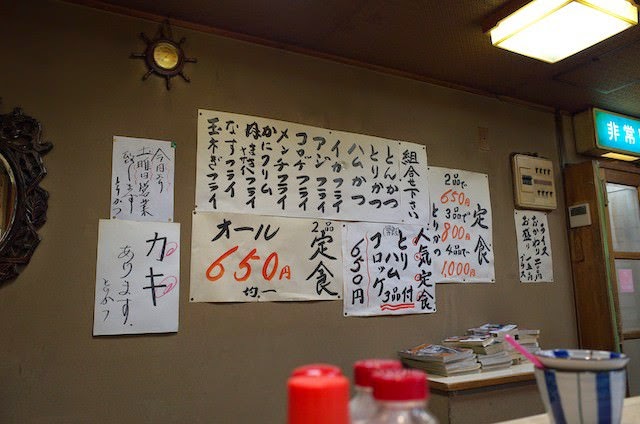 非常
定食
2品で
650円
3品で
800円
4品で
1,000円
とりかつ
組合せ下さい
とんかつ
とりかつ
ハムかつ
イカフライ
アジフライ
コロッケ
メンチフライ
かにクリーム
なすフライ
玉ネギフライ
人気定食
とりハム
コロッケ
3品付
650円
2品
定食
オール
650円
均一
土曜日営業
致します
とりかつ
カキ
あります。
とりかつ
ライス
おかわり